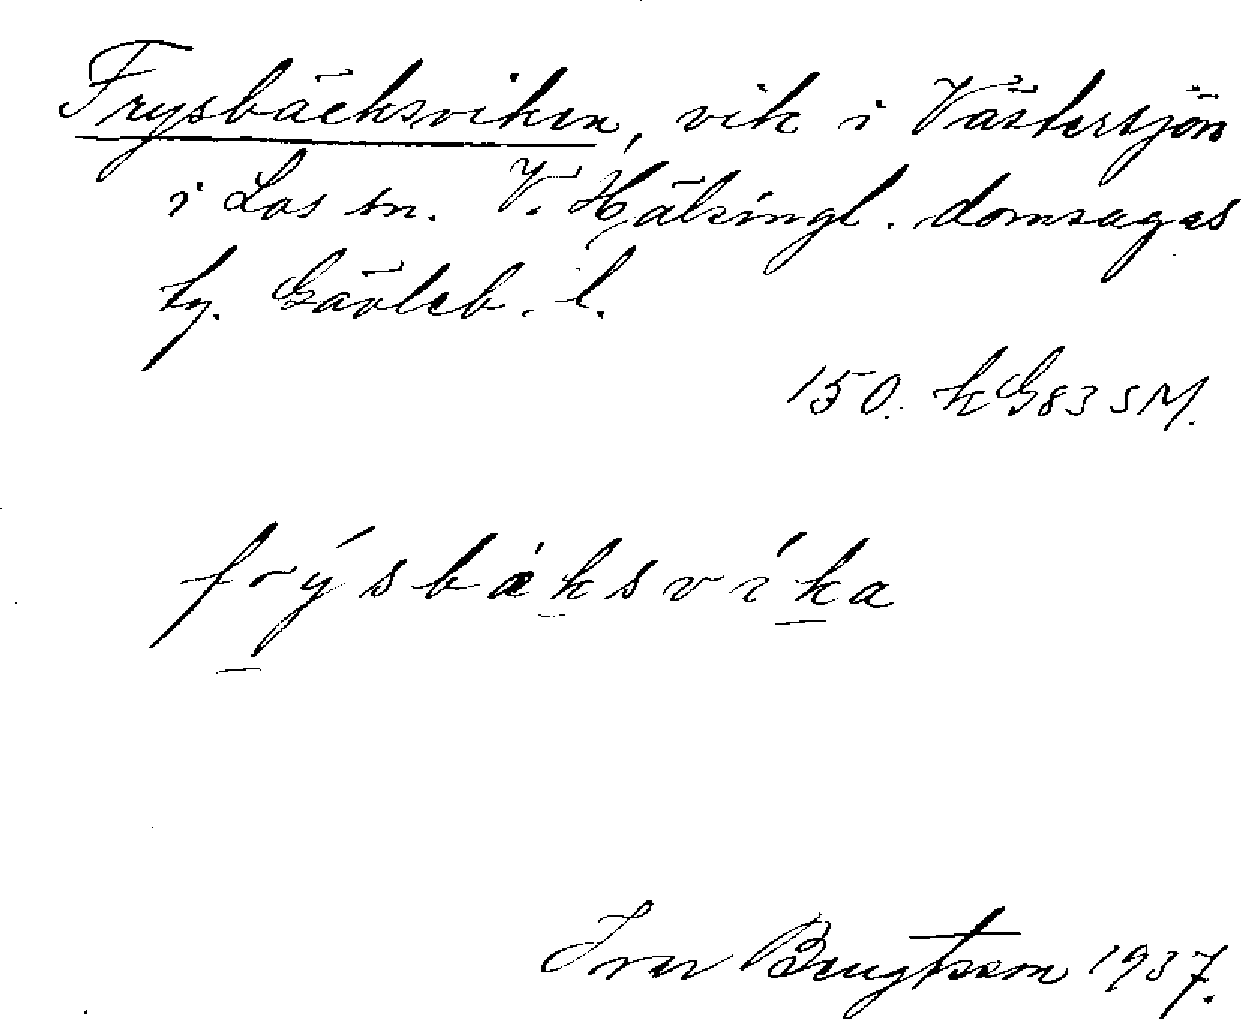 Frysbäcksviken, vik i Västersjön
i Los sn. V. Hälsingl. domsagas
tg. Gävleb. l.
150. kG83 SM.
frýsbäksvíka
Iver Bengtsson 1937.